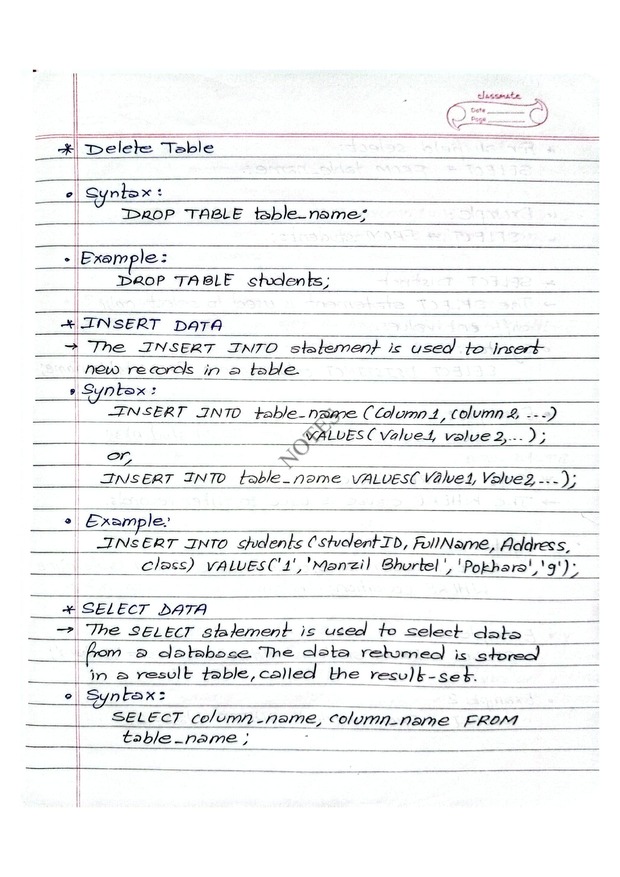 classmate
Date
Page
* Delete Table
• Syntax:
DROP TABLE table_name;
• Example:
DROP TABLE students;
* INSERT DATA
→ The INSERT INTO statement is used to insert
new records in a table.
• Syntax:
INSERT INTO table_name (Column1, column2, ...)
VALUES (Value1, value2, ...);
or,
INSERT INTO table_name VALUES(Value1, Value2, ...);
NOTES
• Example:
INSERT INTO students (studentID, FullName, Address,
class) VALUES('1','Manzil Bhurtel','Pokhara','9');
* SELECT DATA
→ The SELECT statement is used to select data
from a database. The data returned is stored
in a result table, called the result-set.
• Syntax:
SELECT column_name, column_name FROM
table_name;